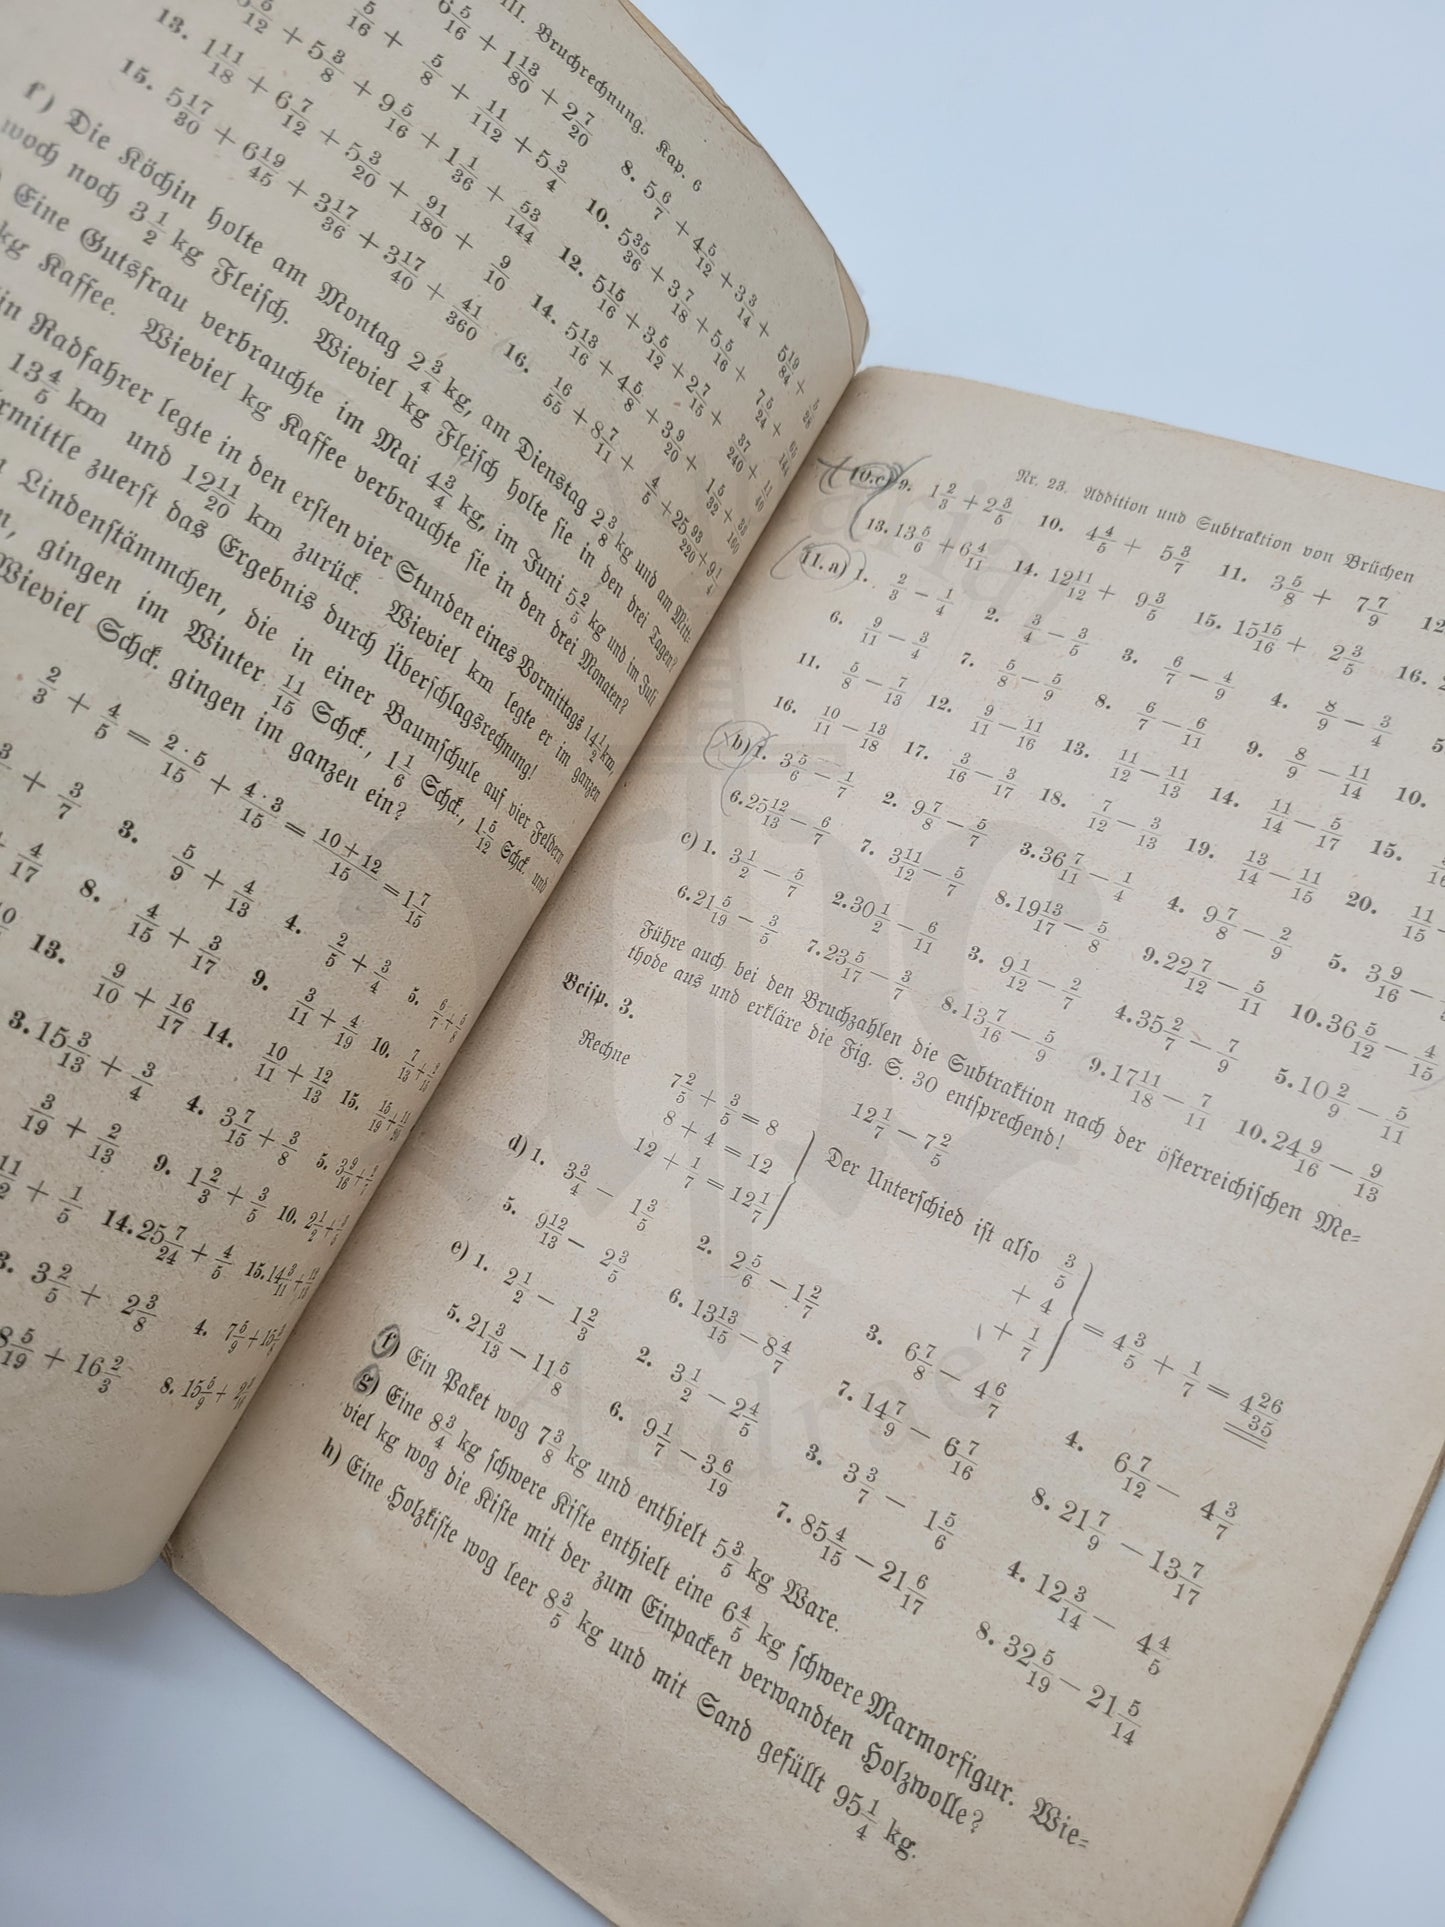 III. Bruchrechnung. Kap. 6
6 5/16 + 1 13/80 + 2 7/20 8. 5 6/7 + 4 5/12 + 3 3/14 + 5 19/84 +
5/16 + 5/8 + 11/112 + 5 3/4 10. 5 35/36 + 3 7/18 + 5 5/16 + 7 5/24 +
5/12 + 5 3/8 + 9 5/16 + 1 1/36 + 53/144 12. 5 15/16 + 3 5/12 + 2 7/15 + 37/240 + 11/40
13. 1 11/18 + 6 7/12 + 5 3/20 + 91/180 + 9/10 14. 5 13/16 + 4 5/8 + 3 9/20 + 1 5/32 +
15. 5 17/30 + 6 19/45 + 3 17/36 + 3 17/40 + 41/360 16. 16/55 + 8 7/11 + 4/5 + 25 93/220 + 9 1/4
f) Die Köchin holte am Montag 2 3/4 kg, am Dienstag 2 3/8 kg und am Mitt-
woch noch 3 1/2 kg Fleisch. Wieviel kg Fleisch holte sie in den drei Tagen?
Eine Gutsfrau verbrauchte im Mai 4 3/4 kg, im Juni 5 2/5 kg und im Juli
kg Kaffee. Wieviel kg Kaffee verbrauchte sie in den drei Monaten?
in Radfahrer legte in den ersten vier Stunden eines Vormittags 14 1/2 km,
13 4/5 km und 12 11/20 km zurück. Wieviel km legte er im ganzen
rmittle zuerst das Ergebnis durch Überschlagsrechnung!
Lindenstämmchen, die in einer Baumschule auf vier Feldern
gingen im Winter 11/15 Schck., 1 1/6 Schck., 1 5/12 Schck. und
Wieviel Schck. gingen im ganzen ein?
2/3 + 4/5 = 2·5/15 + 4·3/15 = 10+12/15 = 1 7/15
+ 3/7 3. 5/9 + 4/13 4. 2/5 + 3/4 5. 6/7 + 5/8
+ 4/17 8. 4/15 + 3/17 9. 3/11 + 4/19 10.
13. 9/10 + 16/17 14. 10/11 + 12/13 15.
3. 15 3/13 + 3/4 4. 3 7/15 + 3/8 5.
3/19 + 2/13 9. 1 2/3 + 3/5 10.
+ 1/5 14. 25 7/24 + 4/5 15.
3. 3 2/5 + 2 3/8 4.
8 5/19 + 16 2/3 8.
Nr. 23. Addition und Subtraktion von Brüchen
10. c) 9. 1 2/3 + 2 3/5 10. 4 4/5 + 5 3/7 11. 3 5/8 + 7 7/9 12
13. 13 5/6 + 6 4/11 14. 12 11/12 + 9 3/5 15. 15 15/16 + 2 3/5 16.
11. a) 1. 2/3 − 1/4 2. 3/4 − 3/5 3. 6/7 − 4/9 4. 8/9 − 3/4 5
6. 9/11 − 3/4 7. 5/8 − 5/9 8. 6/7 − 6/11 9. 8/9 − 11/14 10.
11. 5/8 − 7/13 12. 9/11 − 11/16 13. 11/12 − 11/13 14. 11/14 − 5/17 15.
16. 10/11 − 13/18 17. 3/16 − 3/17 18. 7/12 − 3/13 19. 13/14 − 11/15 20. 11/15 −
b) 1. 3 5/6 − 1/7 2. 9 7/8 − 5/7 3. 36 7/11 − 1/4 4. 9 7/8 − 2/9 5. 3 9/16 −
6. 25 12/13 − 6/7 7. 3 11/12 − 5/7 8. 19 13/17 − 5/8 9. 22 7/12 − 5/11 10. 36 5/12 − 4/15
c) 1. 3 1/2 − 5/7 2. 30 1/2 − 6/11 3. 9 1/12 − 2/7 4. 35 2/7 − 7/9 5. 10 2/9 − 5/11
6. 21 5/19 − 3/5 7. 23 5/17 − 3/7 8. 13 7/16 − 5/9 9. 17 11/18 − 7/11 10. 24 9/16 − 9/13
Führe auch bei den Bruchzahlen die Subtraktion nach der österreichischen Me-
thode aus und erkläre die Fig. S. 30 entsprechend!
Beisp. 3. 12 1/7 − 7 2/5
Rechne 7 2/5 + 3/5 = 8
8 + 4 = 12
12 + 1/7 = 12 1/7
Der Unterschied ist also 3/5 + 4 + 1/7 = 4 3/5 + 1/7 = 4 26/35
d) 1. 3 3/4 − 1 3/5 2. 2 5/6 − 1 2/7 3. 6 7/8 − 4 6/7 4. 6 7/12 − 4 3/7
5. 9 12/13 − 2 3/5 6. 13 13/15 − 8 4/7 7. 14 7/9 − 6 7/16 8. 21 7/9 − 13 7/17
e) 1. 2 1/2 − 1 2/3 2. 3 1/2 − 2 4/5 3. 3 3/7 − 1 5/6 4. 12 3/14 − 4 4/5
5. 21 3/13 − 11 5/8 6. 9 1/7 − 3 6/19 7. 85 4/15 − 21 6/17 8. 32 5/19 − 21 5/14
f) Ein Paket wog 7 3/8 kg und enthielt 5 3/5 kg Ware.
g) Eine 8 3/4 kg schwere Kiste enthielt eine 6 4/5 kg schwere Marmorfigur. Wie-
viel kg wog die Kiste mit der zum Einpacken verwandten Holzwolle?
h) Eine Holzkiste wog leer 8 3/5 kg und mit Sand gefüllt 95 1/4 kg.